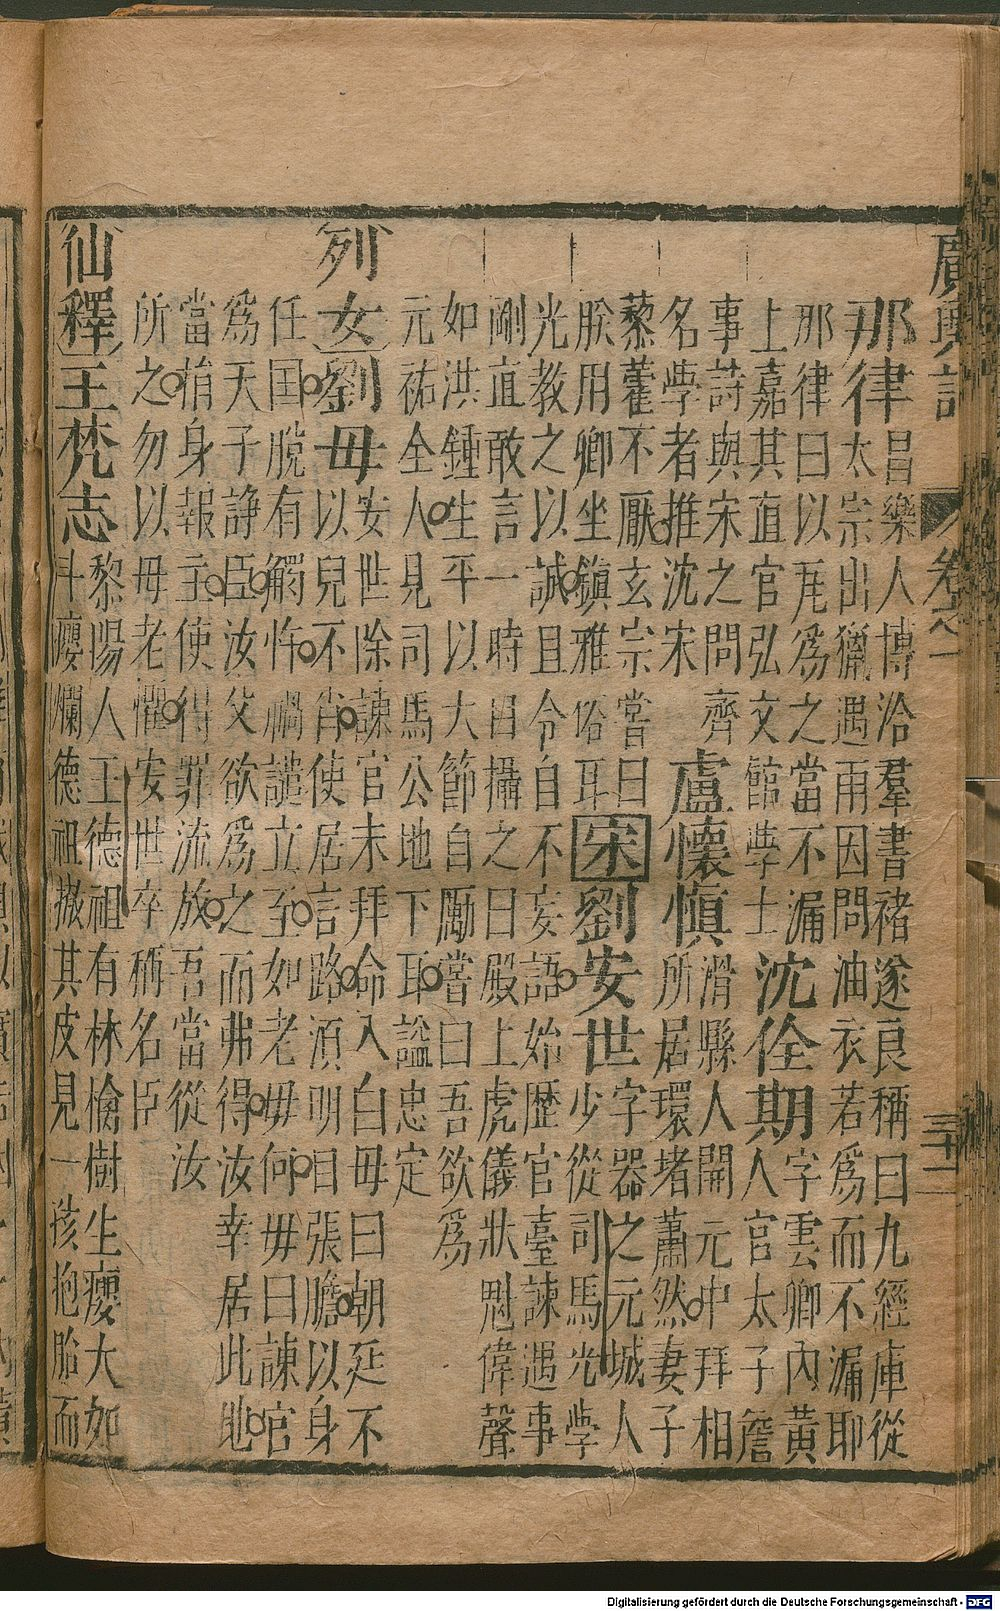 廣輿記 卷之一 三十二
那律 昌樂人博洽羣書褚遂良稱曰九經庫從
太宗出獵遇雨因問油衣若爲而不漏耶
那律曰以瓦爲之當不漏
上嘉其直官弘文館學士 沈佺期 字雲卿內黃
人官太子詹
事詩與宋之問齊
名學者推沈宋 盧懷慎 滑縣人開元中拜相
所居環堵蕭然妻子
藜藿不厭玄宗嘗曰
朕用卿坐鎮雅俗耳 宋 劉安世 字器之元城人
少從司馬光學
光教之以誠且令自不妄語始歷官臺諫遇事
剛直敢言一時目攝之曰殿上虎儀狀魁偉聲
如洪鍾生平以大節自勵嘗曰吾欲爲
元祐全人見司馬公地下耳謚忠定
列女 劉母 安世除諫官未拜命入白母曰朝廷不
以兒不肖使居言路須明目張膽以身
任国脫有觸忤禍譴立至如老母何母曰諫官
爲天子諍臣汝父欲爲之而弗得汝幸居此地
當捐身報主使得罪流放吾當從汝
所之勿以母老懼安世卒稱名臣
仙釋 王梵志 黎陽人王德祖有林檎樹生癭大如
斗癭爛德祖撤其皮見一孩抱胎而
Digitalisierung gefördert durch die Deutsche Forschungsgemeinschaft - DFG